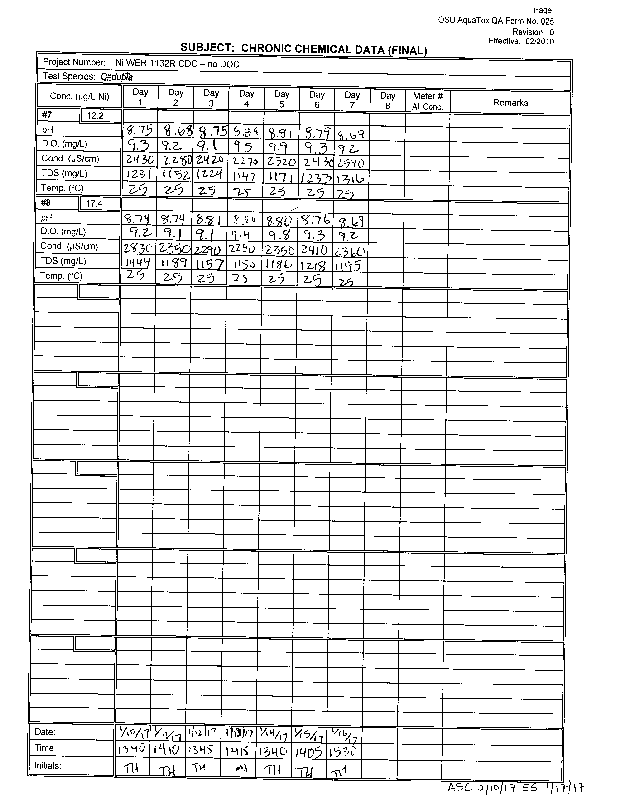 Page
OSU AquaTox QA Form No. 025
Revision 0
Effective 02/2010
SUBJECT: CHRONIC CHEMICAL DATA (FINAL)
Project Number: Ni WER 1132R CDC – no DOC
Test Species: C. dubia
Conc. (µg/L Ni) Day 1 Day 2 Day 3 Day 4 Day 5 Day 6 Day 7 Day 8 Meter # All Conc. Remarks
#7 12.2
pH 8.75 8.68 8.75 8.81 8.79 8.69
D.O. (mg/L) 9.3 9.2 9.1 9.5 9.9 9.3 9.2
Cond (µS/cm) 2430 2280 2420 2270 2320 2430
TDS (mg/L) 1231 1152 1224 1147 1171 1233 1316
Temp. (°C) 25 25 25 25 25 25 25
#8 17.4
pH 8.74 8.74 8.81 8.80 8.76 8.69
D.O. (mg/L) 9.2 9.1 9.1 9.4 9.8 9.3 9.2
Cond (µS/cm) 2830 2350 2290 2350 2410 2360
TDS (mg/L) 1444 1189 1157 1150 1186 1218 1195
Temp. (°C) 25 25 25 25 25 25 25
Date: 1/10/17 1/12/17 1/13/17 1/14/17 1/15/17 1/16/17
Time 1340 1410 1345 1415 1340 1405 1530
Initials: TH TH TH TH TH TH
ES 1/17/17